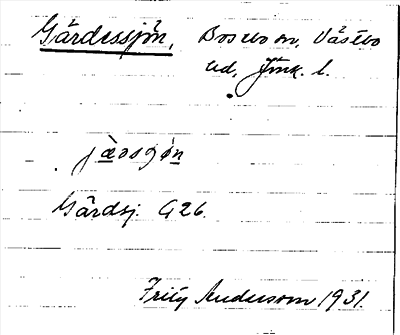 Gärdessjön, Bosebo sn, Västbo
hd, Jönk. l.
Gärdsj. G26.
Fritz Andersson 1931.